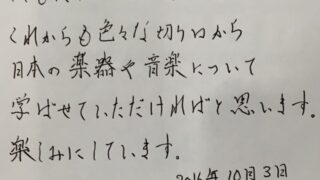 これからも色々な切り口から
日本の楽器や音楽について
学ばせていただければと思います。
楽しみにしています。
2016年10月3日